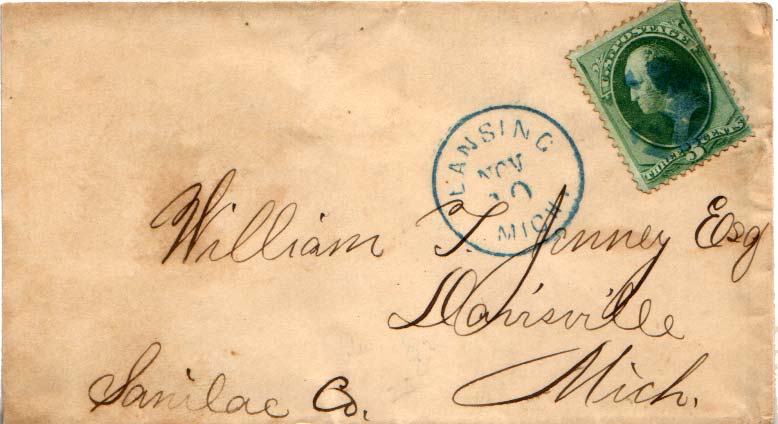 U.S. POSTAGE
THREE 3 CENTS
LANSING
NOV
10
MICH.
William T. Jenney Esq
Davisville
Mich.
Sanilac Co.